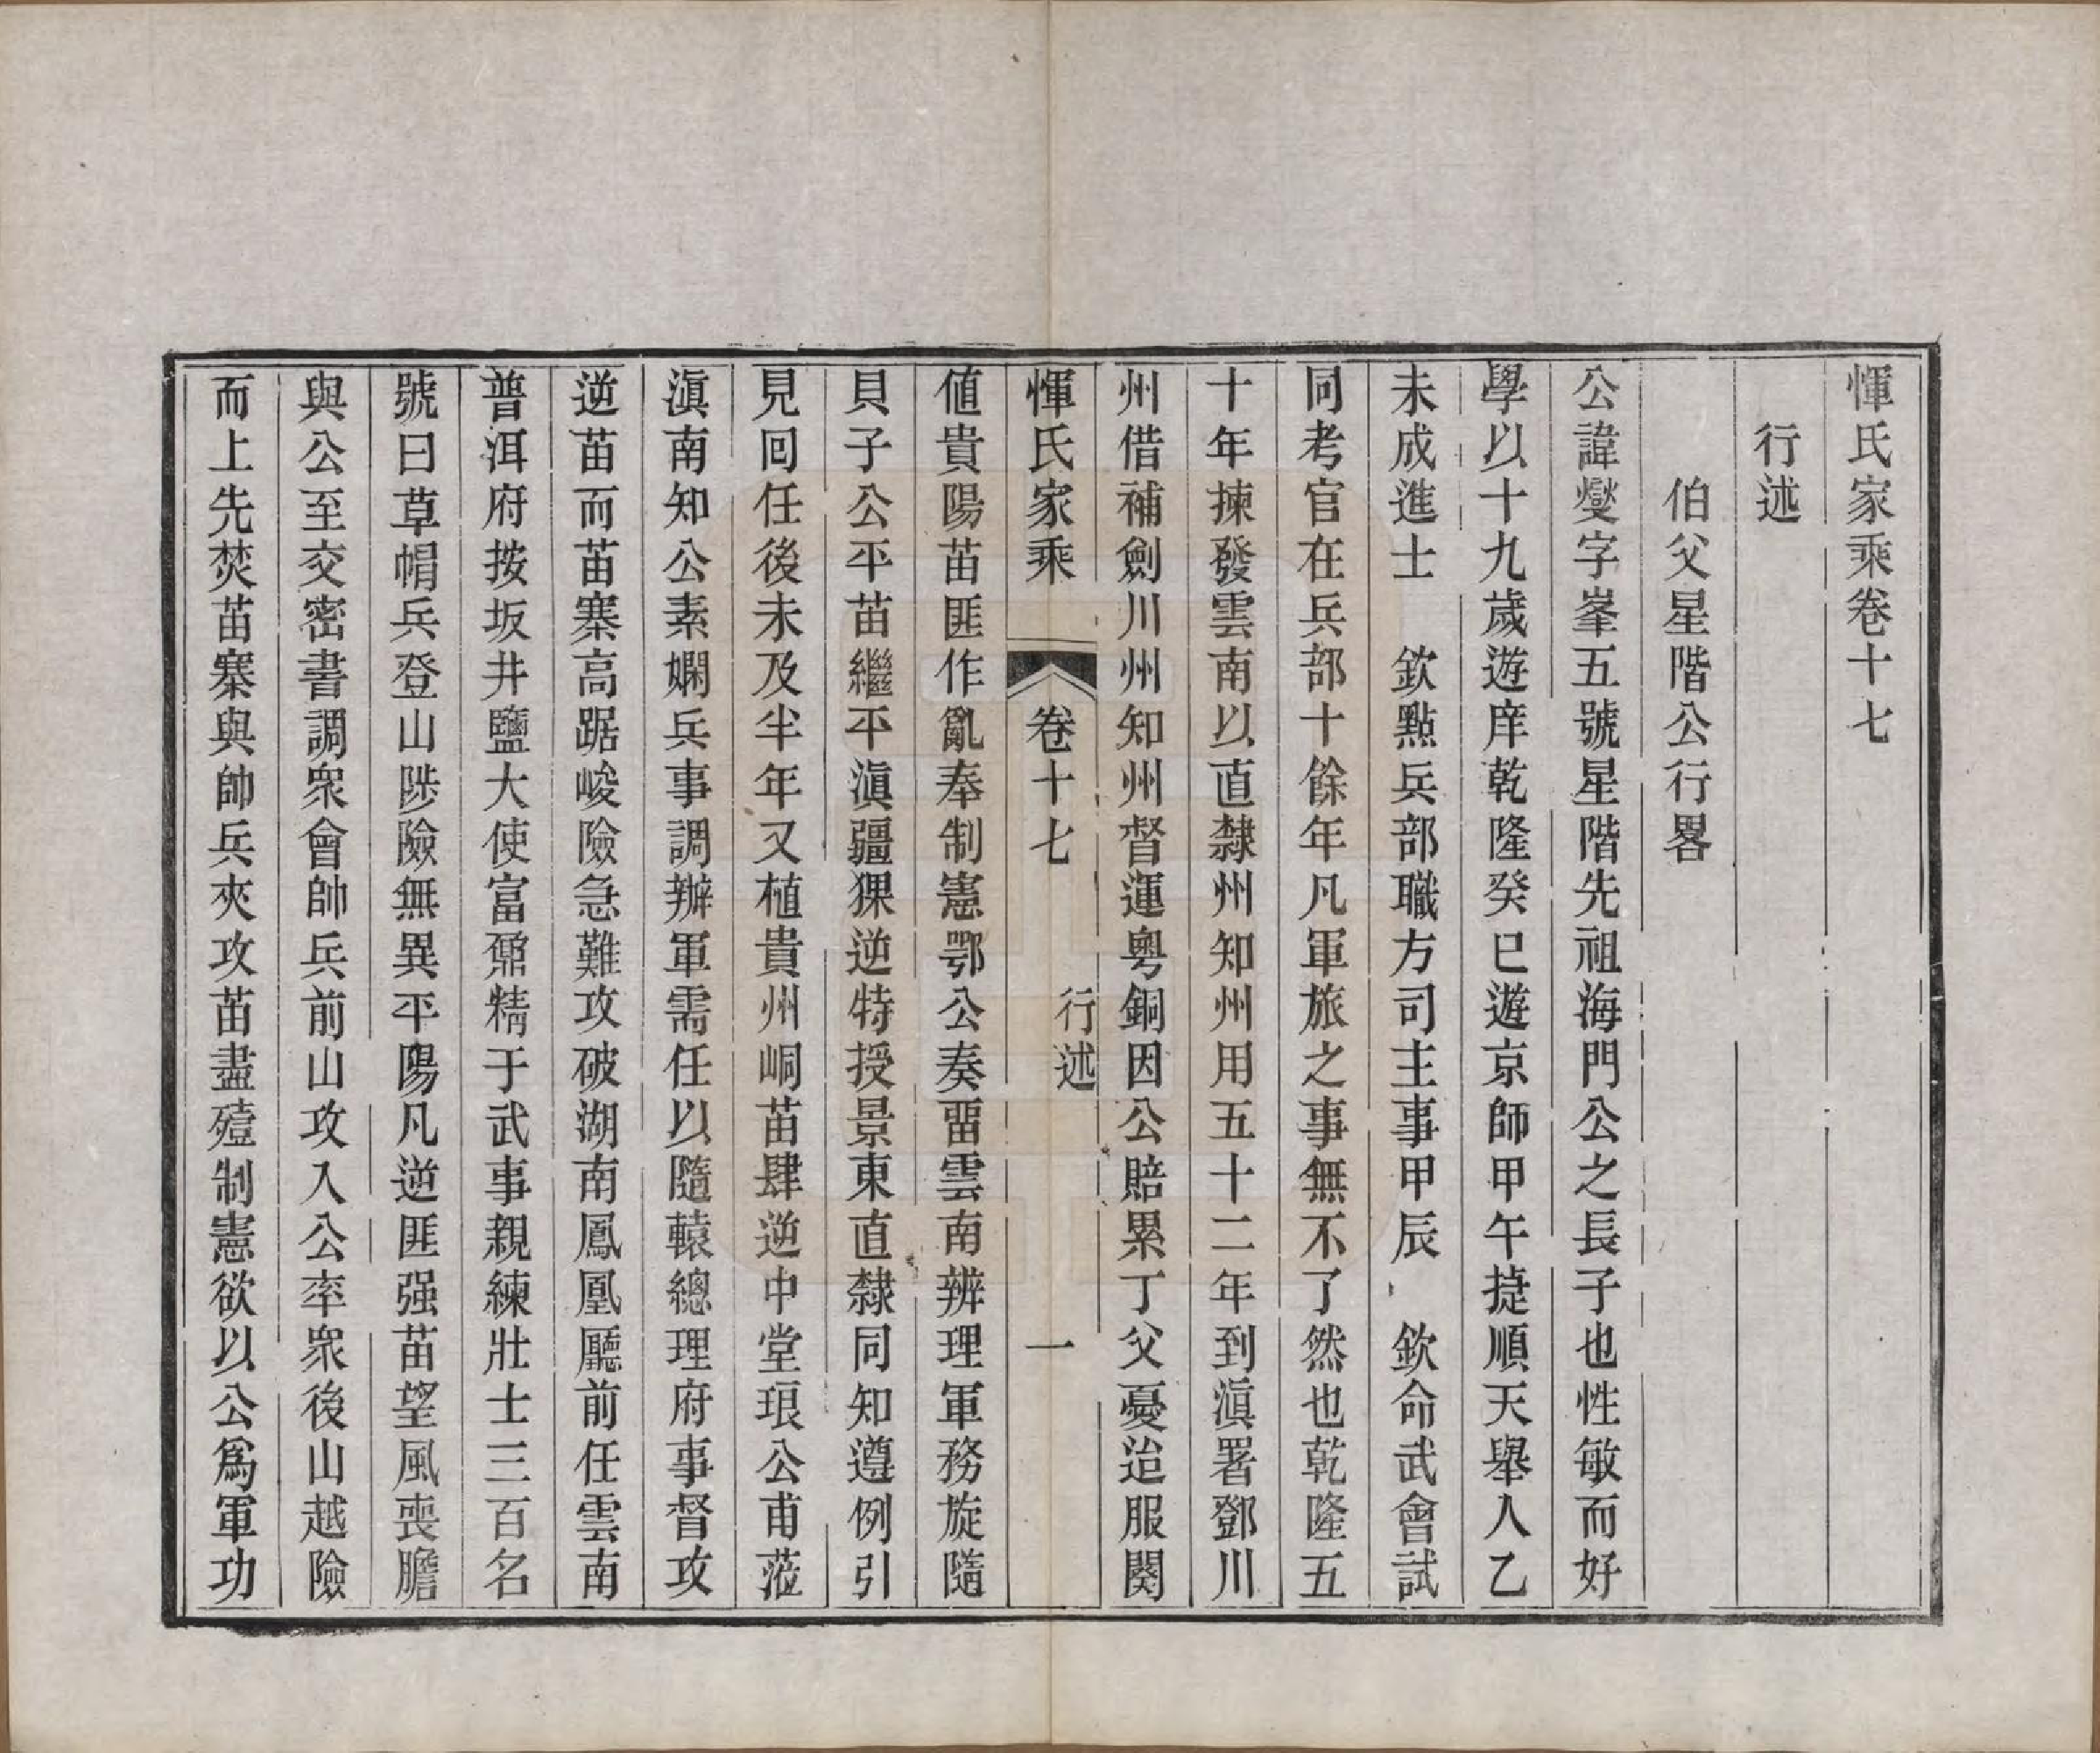 惲氏家乘卷十七
行述
伯父星階公行畧
公諱燮字峯五號星階先祖海門公之長子也性敏而好
學以十九歲遊庠乾隆癸巳遊京師甲午捷順天舉人乙
未成進士　欽點兵部職方司主事甲辰　欽命武會試
同考官在兵部十餘年凡軍旅之事無不了然也乾隆五
十年揀發雲南以直隸州知州用五十二年到滇署鄧川
州借補劍川州知州督運粵銅因公賠累丁父憂治服闋
惲氏家乘　卷十七　行述　一
値貴陽苗匪作亂奉制憲鄂公奏畱雲南辨理軍務旋隨
貝子公平苗繼平滇疆猓逆特授景東直隸同知遵例引
見回任後未及半年又植貴州峒苗肆逆中堂琅公甫蒞
滇南知公素嫻兵事調辦軍需任以隨轅總理府事督攻
逆苗而苗寨高踞峻險急難攻破湖南鳳凰廳前任雲南
普洱府按坂井鹽大使富鼐精于武事親練壯士三百名
號曰草帽兵登山陟險無異平陽凡逆匪强苗望風喪膽
與公至交密書調衆會帥兵前山攻入公率衆後山越險
而上先焚苗寨與帥兵夾攻苗盡殪制憲欲以公爲軍功